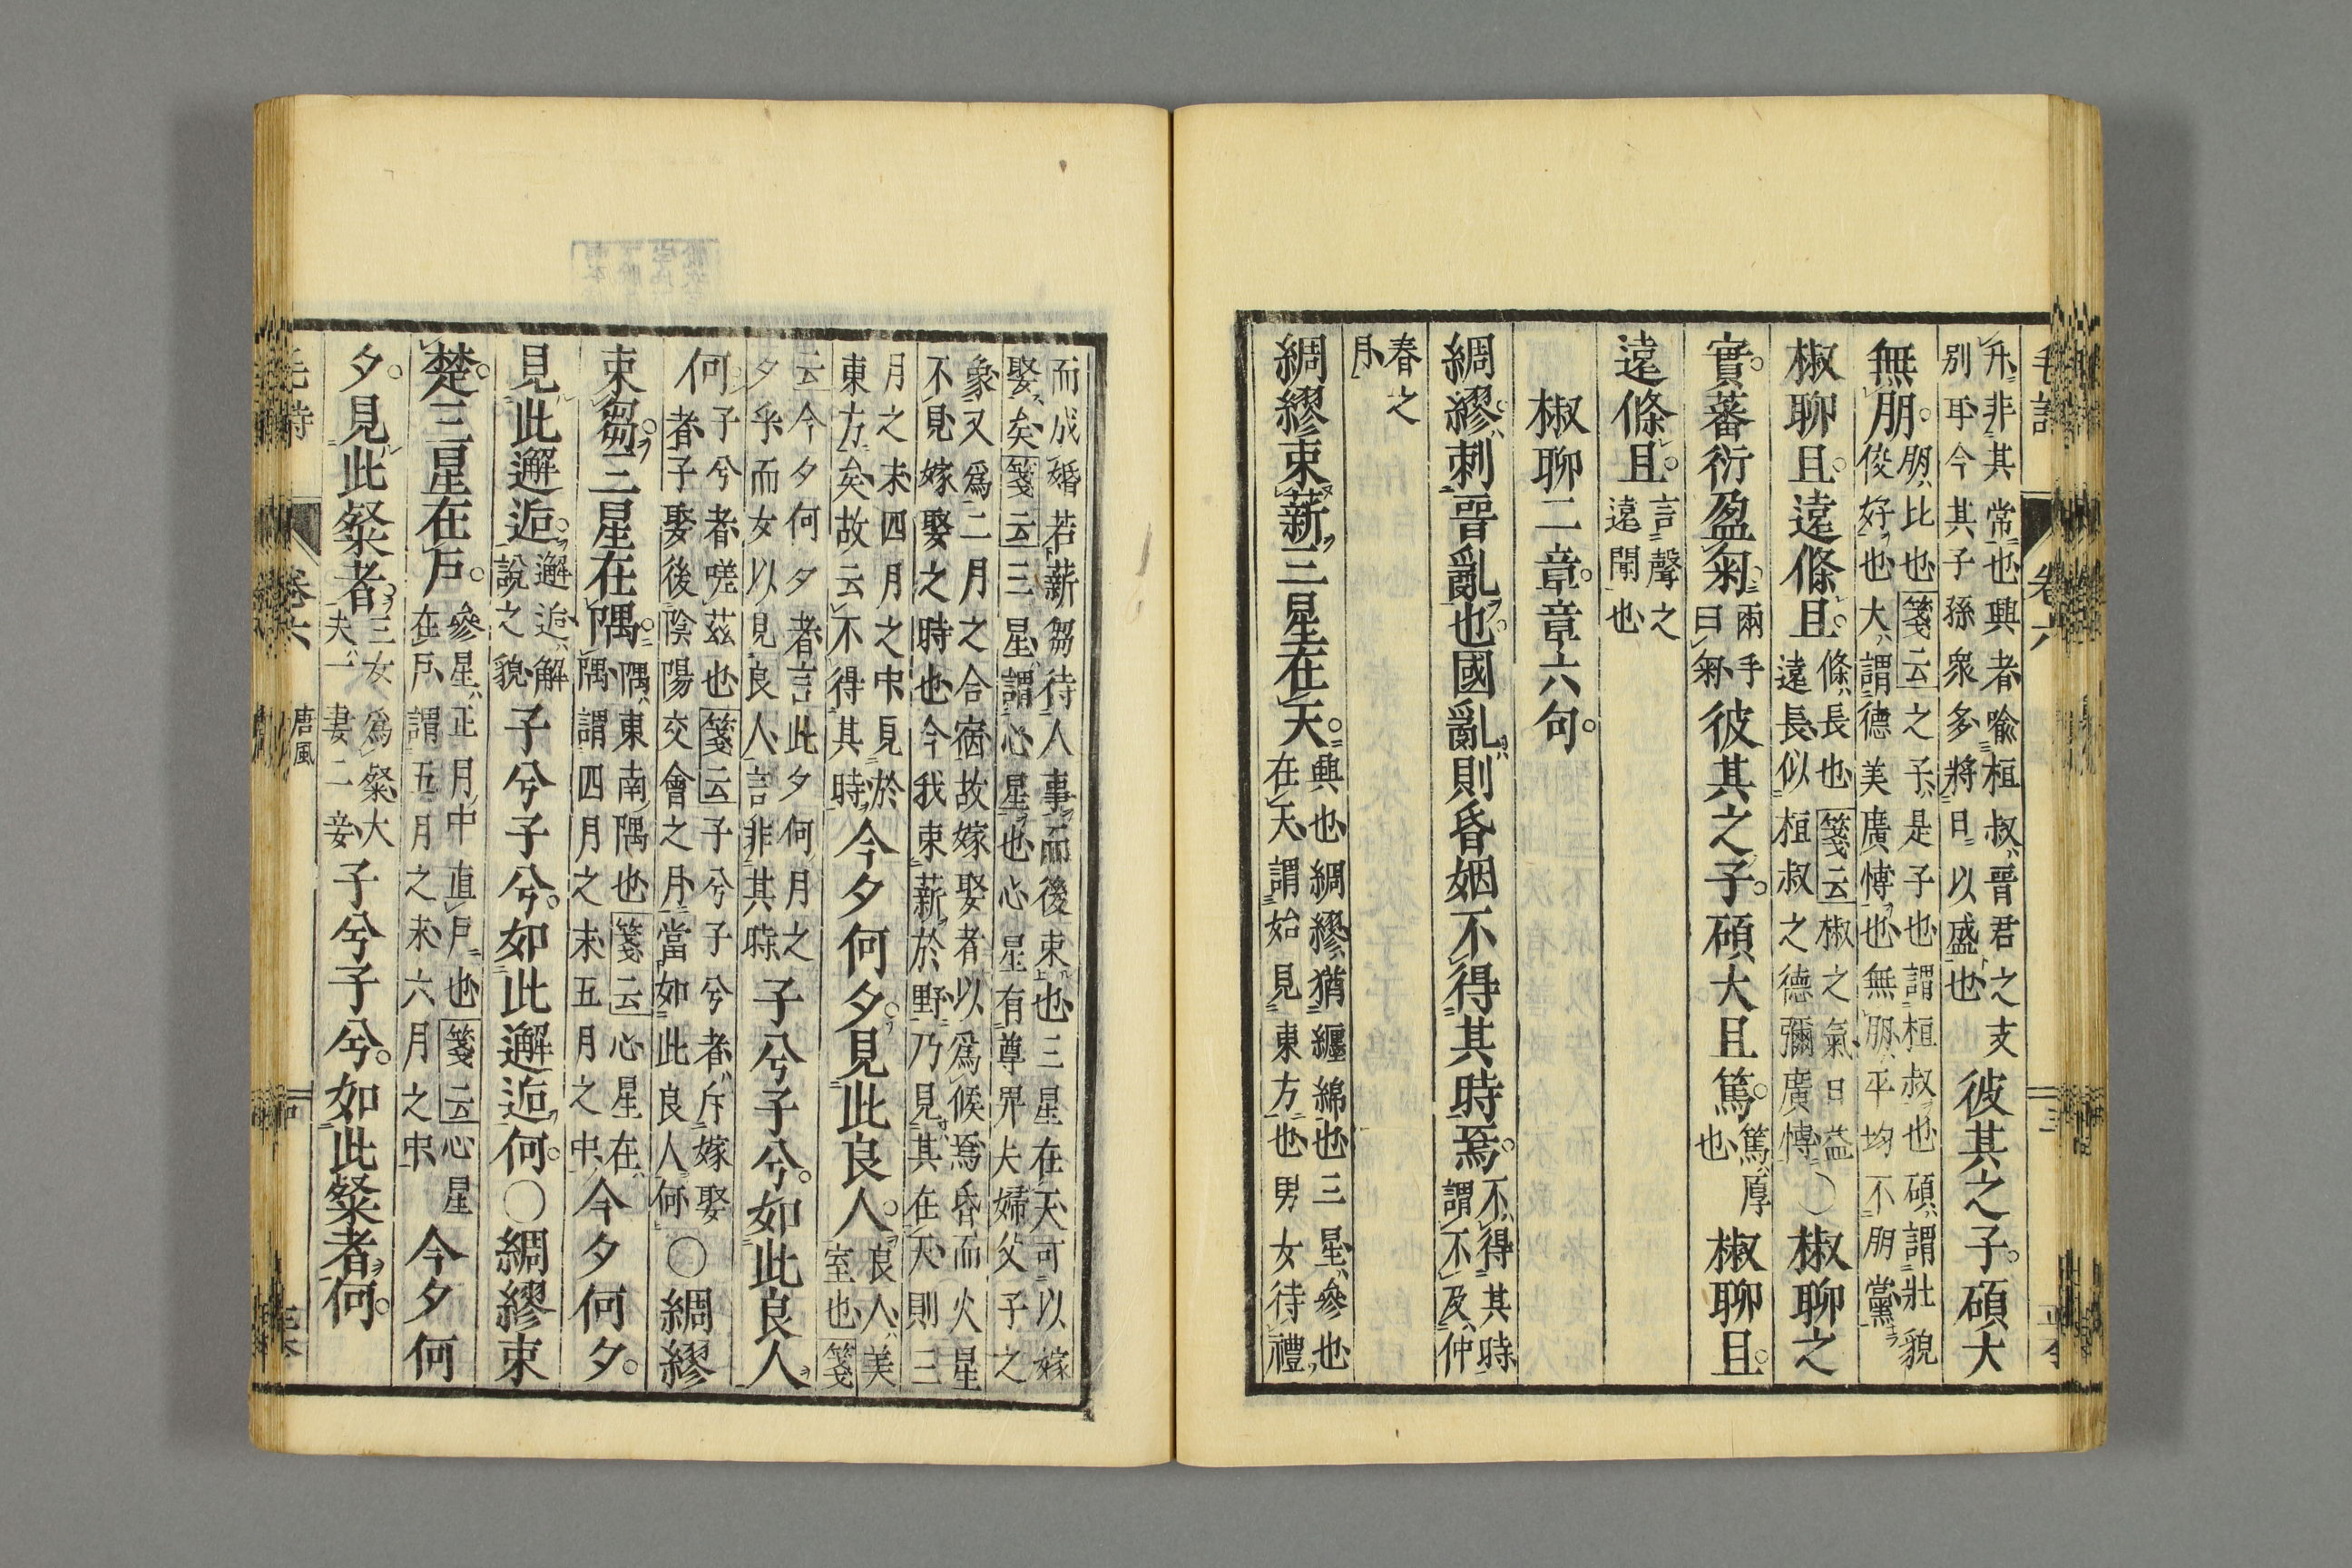 毛詩 卷六
升非其常也興者喻桓叔晉君之支
別耳今其子孫衆多將日以盛也
彼其之子。碩大
無朋。
朋比也箋云之子是子也謂桓叔也碩謂壯貌
俊好也大謂德美廣博也無朋平均不朋黨
椒聊且。遠條且。
條長也箋云椒之氣日益
遠長似桓叔之德彌廣博
〇椒聊之
實。蕃衍盈匊。
兩手
曰匊
彼其之子。碩大且篤。
篤厚
也
椒聊且。
遠條且。
言聲之
遠聞也
椒聊二章。章六句。
綢繆。刺晉亂也。國亂則昏姻不得其時焉。
不得其時
謂不及仲
春之
月
綢繆束薪三星在天。
興也綢繆猶纏綿也三星參也
在天謂始見東方也男女待禮
而成婚若薪芻待人事而後束也三星在天可以嫁
娶矣箋云三星謂心星也心星有尊卑夫婦父子之
象又爲二月之合宿故嫁娶者以爲候焉昏而火星
不見嫁娶之時也今我束薪於野乃見其在天則三
月之末四月之中見於
東方矣故云不得其時
今夕何夕。見此良人。
良人美
室也箋
云今夕何夕者言此夕何月之
夕乎而女以見良人言非其時
子兮子兮。如此良人
何
子兮者嗟茲也箋云子兮子兮者斥嫁娶
者子娶後陰陽交會之月當如此良人何
〇綢繆
束芻。三星在隅。
隅東南隅也箋云心星在
隅謂四月之末五月之中
今夕何夕。
見此邂逅。
邂逅解
說之貌
子兮子兮。如此邂逅何。〇綢繆束
楚。三星在戶。
參星正月中直戶也箋云心星
在戶謂五月之末六月之中
今夕何
夕。見此粲者。
三女爲粲大
夫一妻二妾
子兮子兮。如此粲者何。
毛詩 卷六 唐風